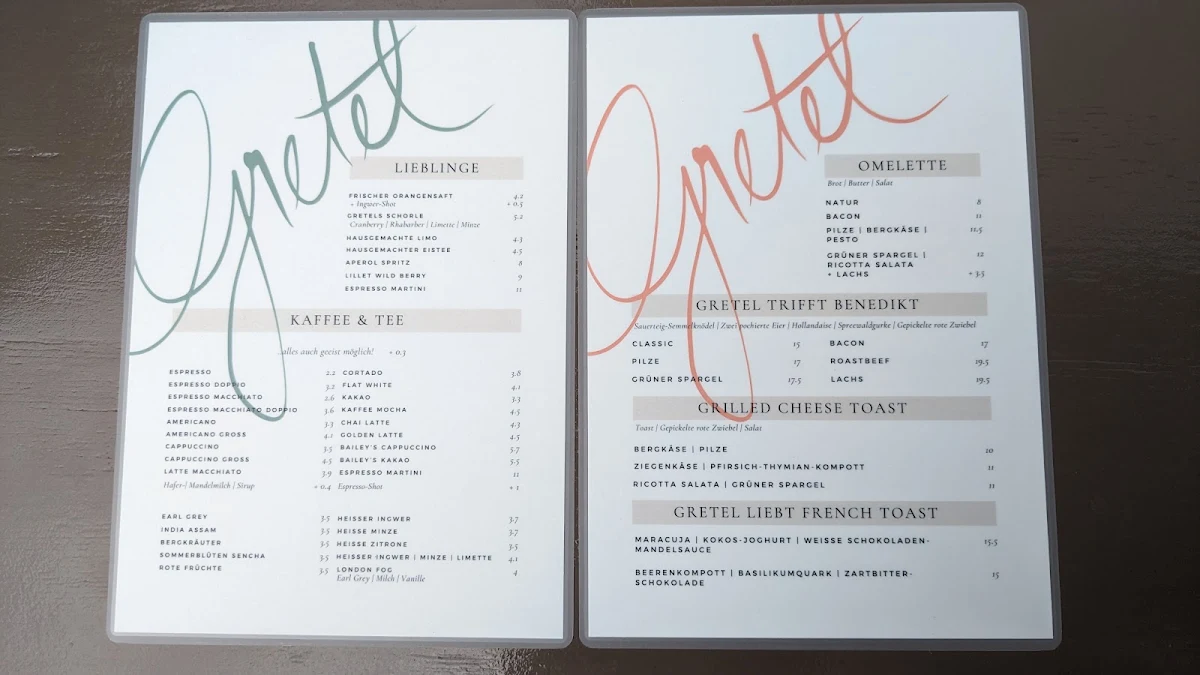 Gretel
LIEBLINGE
FRISCHER ORANGENSAFT 4.2
+ Ingwer-Shot + 0.5
GRETELS SCHORLE 5.2
Cranberry | Rhabarber | Limette | Minze
HAUSGEMACHTE LIMO 4.3
HAUSGEMACHTER EISTEE 4.5
APEROL SPRITZ 8
LILLET WILD BERRY 9
ESPRESSO MARTINI 11
KAFFEE & TEE
...alles auch geeist möglich! + 0.3
ESPRESSO 2.2
ESPRESSO DOPPIO 3.2
ESPRESSO MACCHIATO 2.6
ESPRESSO MACCHIATO DOPPIO 3.6
AMERICANO 3.3
AMERICANO GROSS 4.1
CAPPUCCINO 3.5
CAPPUCCINO GROSS 4.5
LATTE MACCHIATO 3.9
Hafer-| Mandelmilch | Sirup + 0.4
CORTADO 3.8
FLAT WHITE 4.1
KAKAO 3.3
KAFFEE MOCHA 4.5
CHAI LATTE 4.3
GOLDEN LATTE 4.5
BAILEY'S CAPPUCCINO 5.7
BAILEY'S KAKAO 5.5
ESPRESSO MARTINI 11
Espresso-Shot + 1
EARL GREY 3.5
INDIA ASSAM 3.5
BERGKRÄUTER 3.5
SOMMERBLÜTEN SENCHA 3.5
ROTE FRÜCHTE 3.5
HEISSER INGWER 3.7
HEISSE MINZE 3.7
HEISSE ZITRONE 3.5
HEISSER INGWER | MINZE | LIMETTE 4.1
LONDON FOG 4
Earl Grey | Milch | Vanille
Gretel
OMELETTE
Brot | Butter | Salat
NATUR 8
BACON 11
PILZE | BERGKÄSE | 11.5
PESTO
GRÜNER SPARGEL | 12
RICOTTA SALATA
+ LACHS + 3.5
GRETEL TRIFFT BENEDIKT
Sauerteig-Semmelknödel | Zwei pochierte Eier | Hollandaise | Spreewaldgurke | Gepickelte rote Zwiebel
CLASSIC 15
PILZE 17
GRÜNER SPARGEL 17.5
BACON 17
ROASTBEEF 19.5
LACHS 19.5
GRILLED CHEESE TOAST
Toast | Gepickelte rote Zwiebel | Salat
BERGKÄSE | PILZE 10
ZIEGENKÄSE | PFIRSICH-THYMIAN-KOMPOTT 11
RICOTTA SALATA | GRÜNER SPARGEL 11
GRETEL LIEBT FRENCH TOAST
MARACUJA | KOKOS-JOGHURT | WEISSE SCHOKOLADEN- 15.5
MANDELSAUCE
BEERENKOMPOTT | BASILIKUMQUARK | ZARTBITTER- 15
SCHOKOLADE